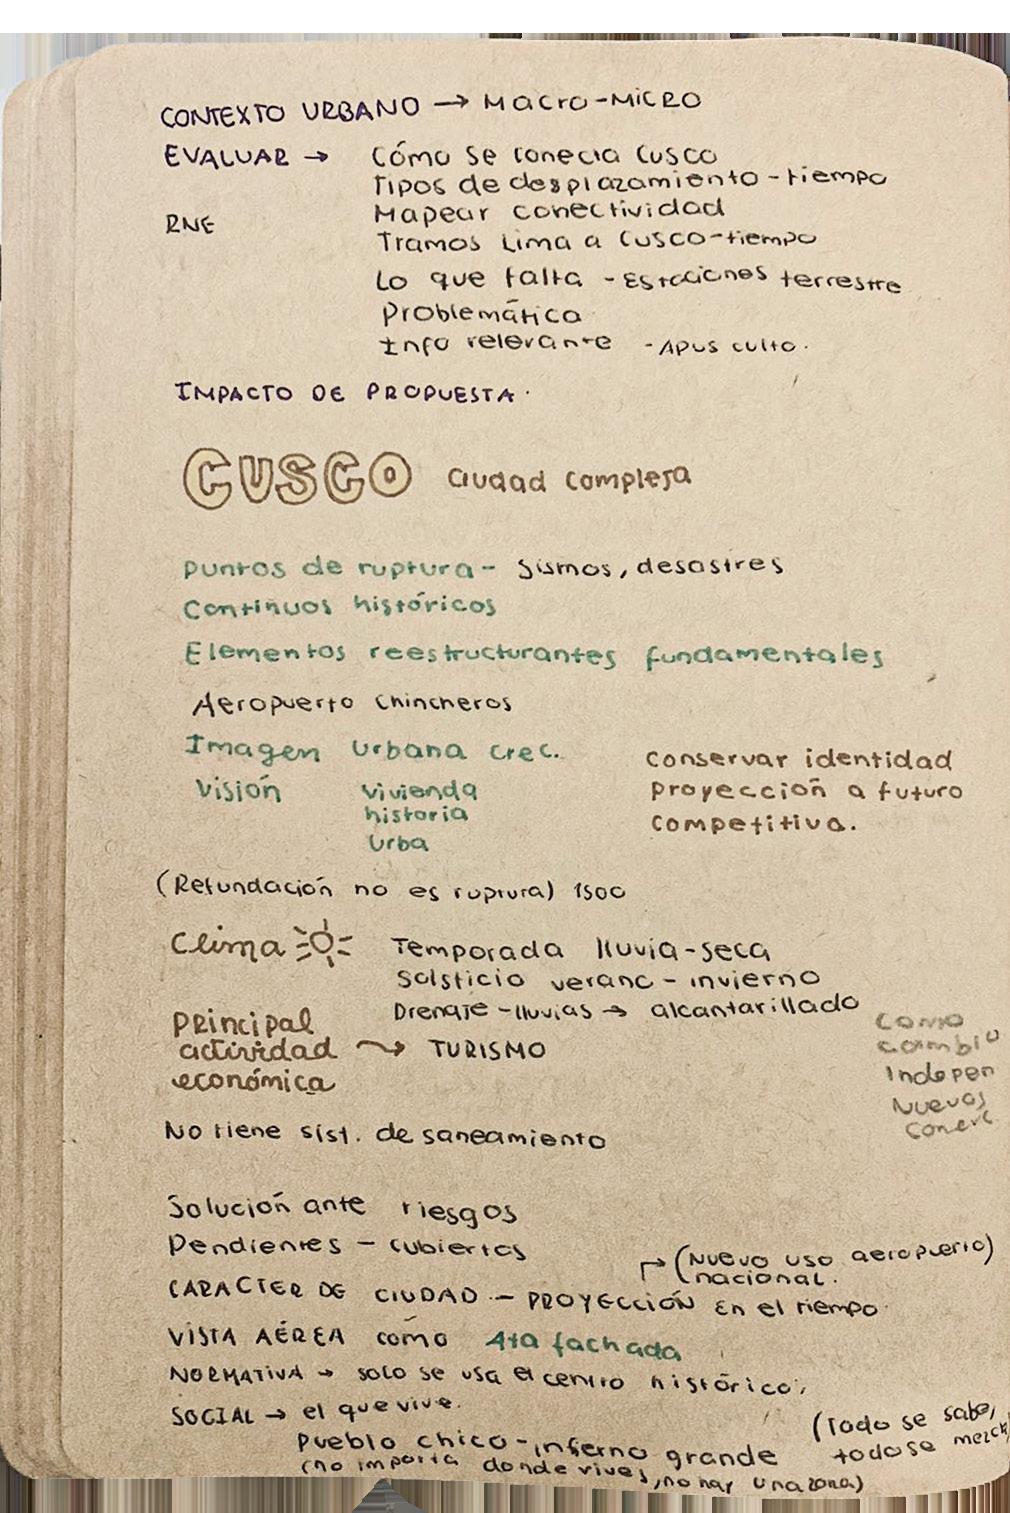 CONTEXTO URBANO → MACRO-MICRO
EVALUAR → Cómo se conecta Cusco
Tipos de desplazamiento - tiempo
RNE Mapear conectividad
Tramos Lima a Cusco-tiempo
Lo que falta - Estaciones terrestre
Problemática
Info relevante - Apus culto.
IMPACTO DE PROPUESTA.
CUSCO Ciudad compleja
Puntos de ruptura - Sismos, desastres
Continuos históricos
Elementos reestructurantes fundamentales
Aeropuerto Chincheros
Imagen Urbana crec.
Visión vivienda
historia
Urba
Conservar identidad
Proyección a futuro
Competitiva.
(Refundación no es ruptura) 1500
Clima Temporada lluvia-seca
Solsticio verano - invierno
Drenaje - lluvias → alcantarillado
Principal
actividad → TURISMO
económica
Como
cambio
Indepen
Nuevas
No tiene sist. de saneamiento
Solución ante riesgos
Pendientes - cubiertas
(Nuevo uso aeropuerto)
nacional.
CARACTER DE CIUDAD - PROYECCIÓN En el tiempo
VISTA AÉREA como 4ta fachada
NORMATIVA → solo se usa el centro histórico,
SOCIAL → el que vive.
Pueblo chico - infierno grande
(no importa donde vives, no hay una zona)
(Todo se sabe,
todo se mezcl